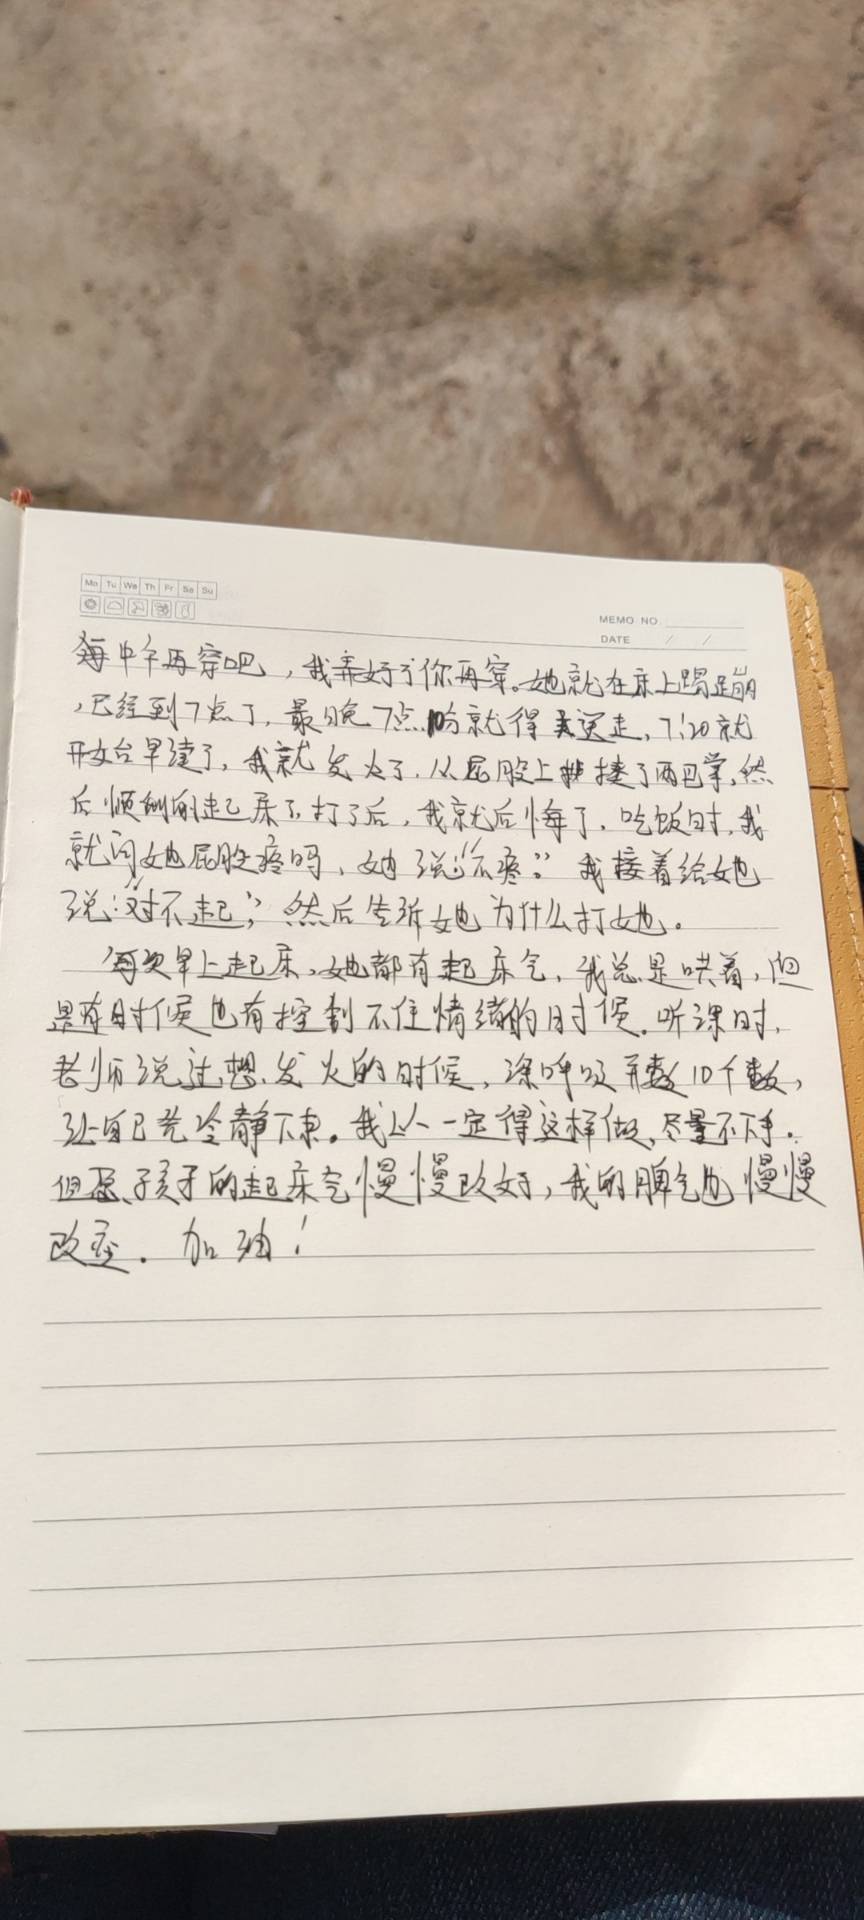 Mo Tu We Th Fr Sa Su
MEMO NO.
DATE / /
每中午再穿吧，我弄好了你再穿。她就在床上蹋蹦
，已经到7点了，最晚7点 就得送走，7:20就
开始早读了，我就发火了，从屁股上捶了两巴掌，然
后顺利的起床了，打了后，我就后悔了，吃饭时，我
就问她屁股疼吗，她说：“不疼”。我接着给她
说：“对不起”，然后告诉她为什么打她。
每次早上起床，她都有起床气，我总是哄着，但
是有时候也有控制不住情绪的时候。听课时，
老师说过想发火的时候，深呼吸并数10个数，
让自己先冷静下来。我以 一定得这样做，尽量不下手。
但愿孩子的起床气慢慢改好，我的脾气也慢慢
改变。加油！